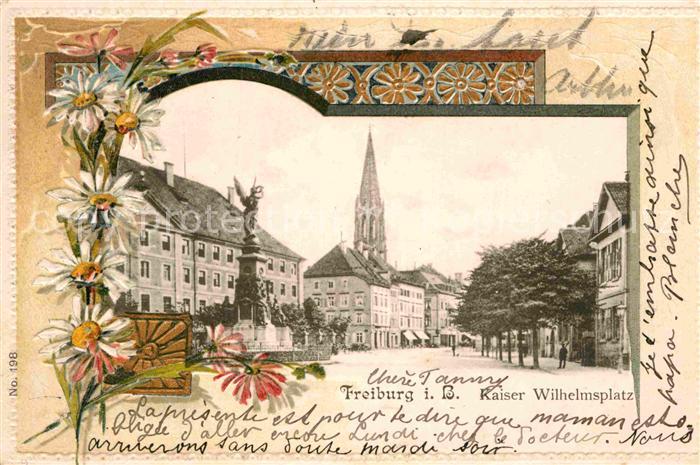 No. 198
Freiburg i. B. Kaiser Wilhelmsplatz
Chère
La présente est pour te dire que maman est o
bligée d'aller encore Lundi chez le docteur. Nous
arriverons sans doute mardi soir.
Je t'embrasse ainsi que
papa. Blanche